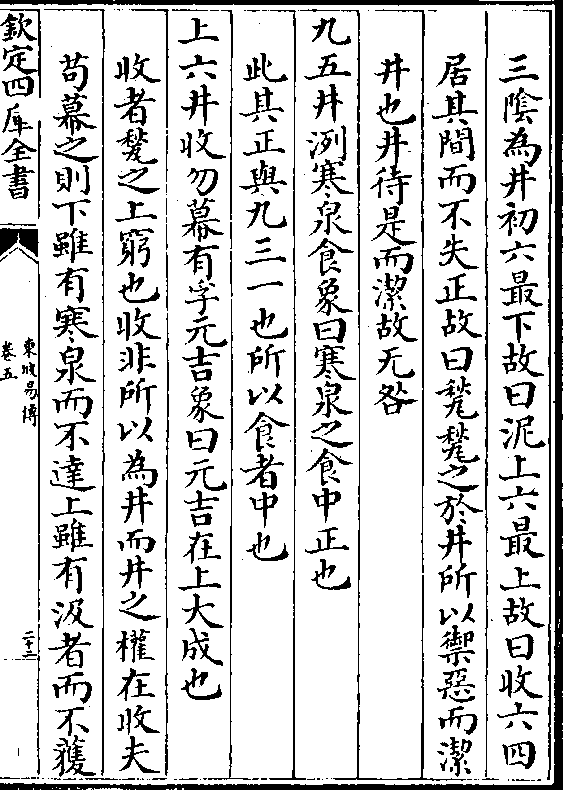 三陰為井初六最下故曰泥上六最上故曰收六四
居其間而不失正故曰甃甃之於井所以禦惡而潔
井也井待是而潔故无咎
九五井洌寒泉食象曰寒泉之食中正也
此其正與九三一也所以食者中也
上六井收勿幕有孚元吉象曰元吉在上大成也
收者甃之上窮也收非所以為井而井之權在收夫
苟幕之則下雖有寒泉而不達上雖有汲者而不獲
欽定四庫全書
東坡易傳
卷五
二十三